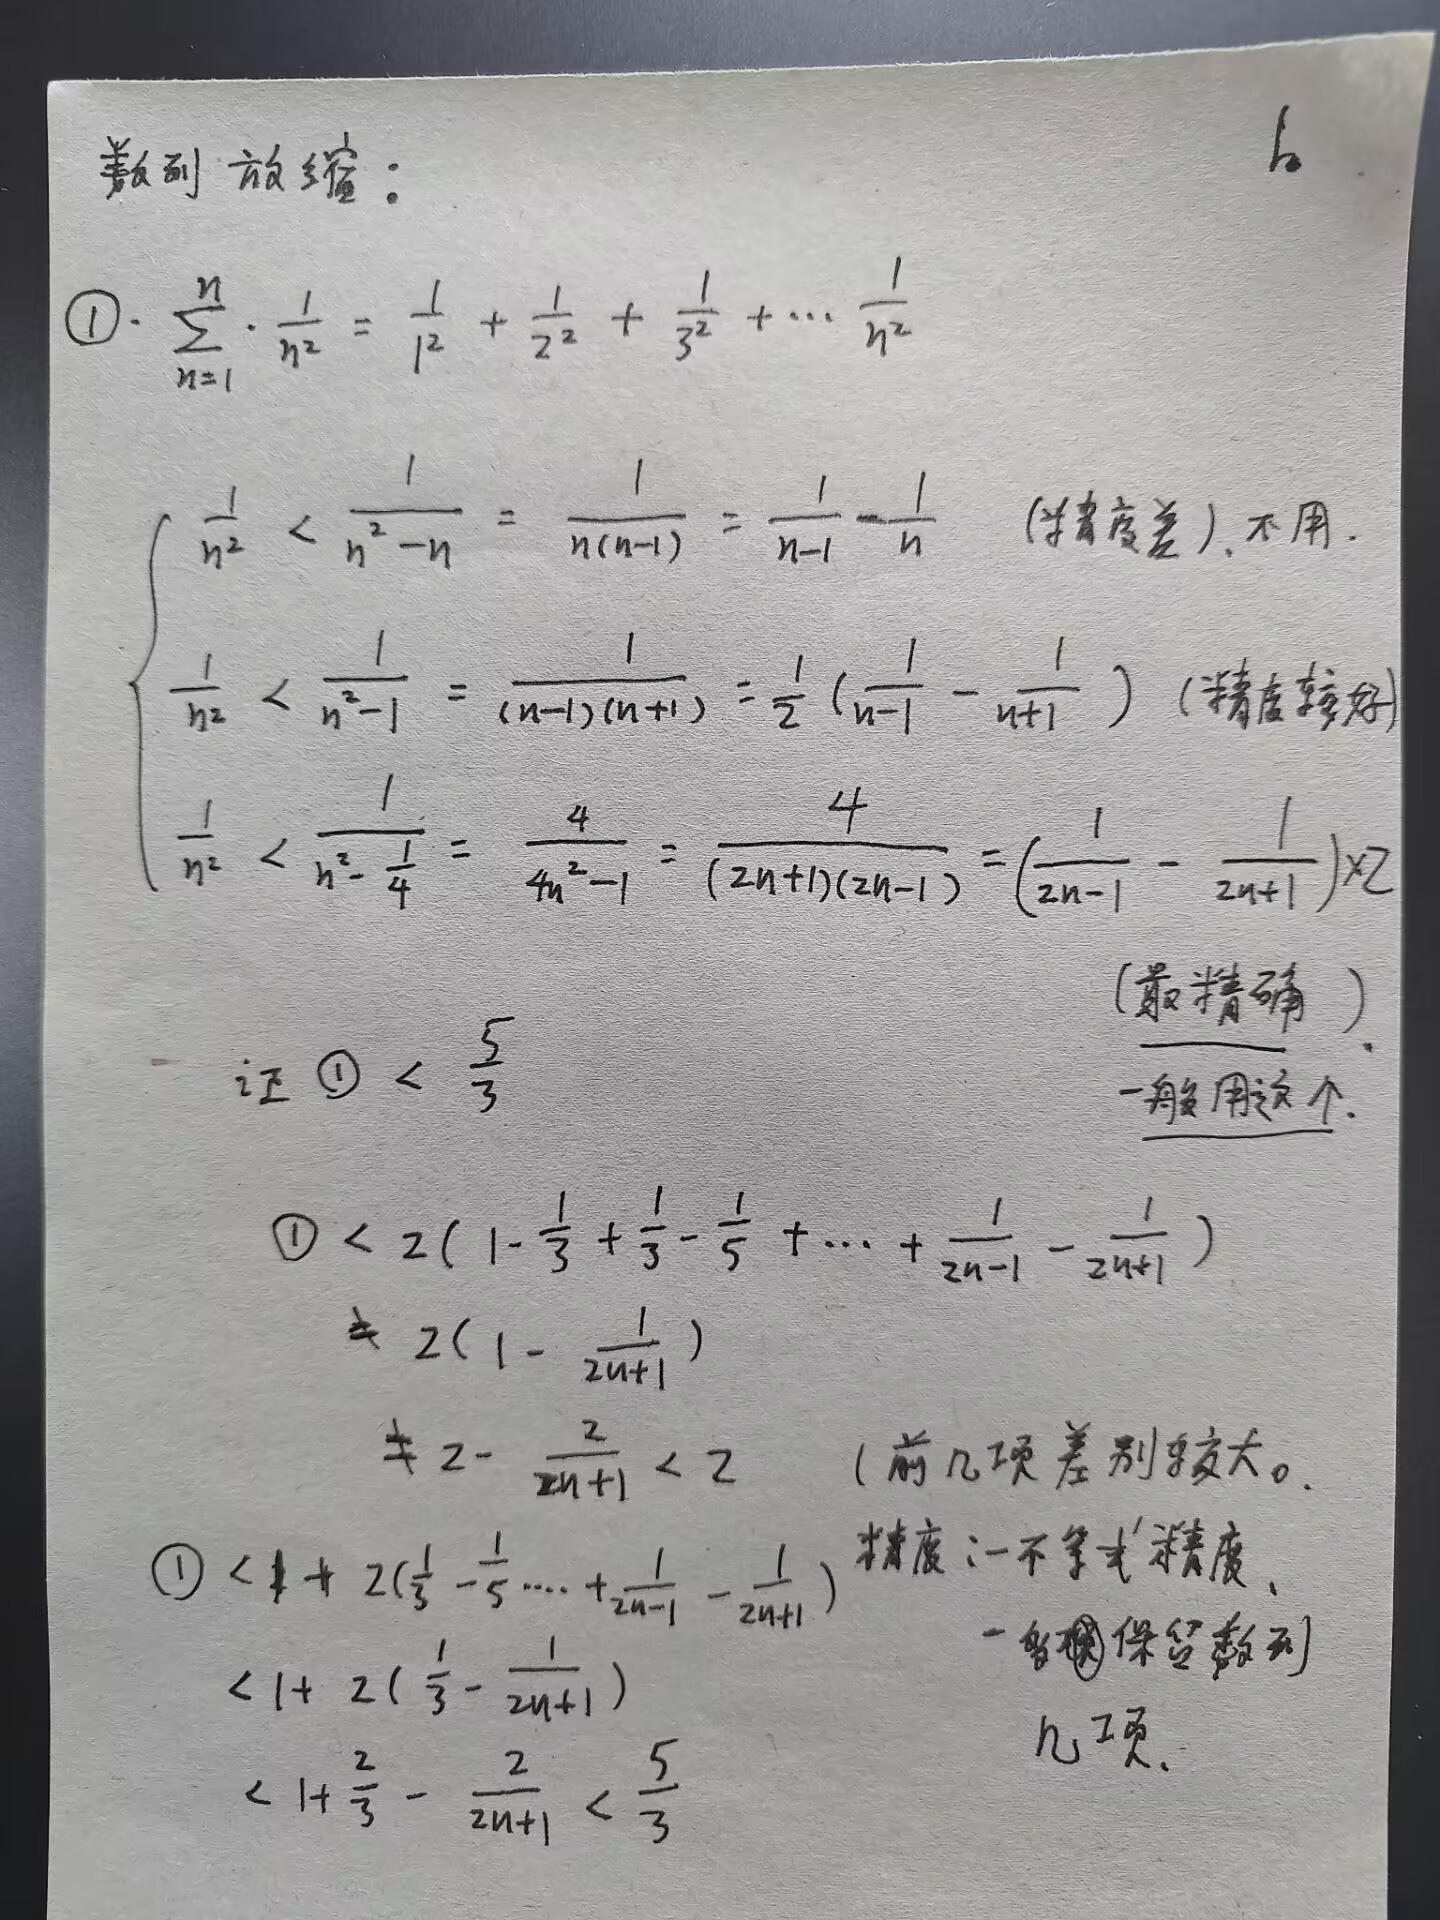 数列放缩：
①. ∑_{n=1}^{n} · 1/n² = 1/1² + 1/2² + 1/3² + ··· 1/n²
1/n² < 1/(n²-n) = 1/(n(n-1)) = 1/(n-1) - 1/n （精度差）、不用.
1/n² < 1/(n²-1) = 1/((n-1)(n+1)) = 1/2 (1/(n-1) - 1/(n+1)) （精度较好）
1/n² < 1/(n²-1/4) = 4/(4n²-1) = 4/((2n+1)(2n-1)) = (1/(2n-1) - 1/(2n+1))×2
（最精确）.
证 ① < 5/3
一般用这个.
① < 2(1 - 1/3 + 1/3 - 1/5 + ··· + 1/(2n-1) - 1/(2n+1))
2(1 - 1/(2n+1))
2 - 2/(2n+1) < 2 （前几项差别较大。
① < 1 + 2(1/3 - 1/5 ···· + 1/(2n-1) - 1/(2n+1))
精度：一不等式精度、
< 1 + 2(1/3 - 1/(2n+1))
保留数列
几项.
< 1 + 2/3 - 2/(2n+1) < 5/3